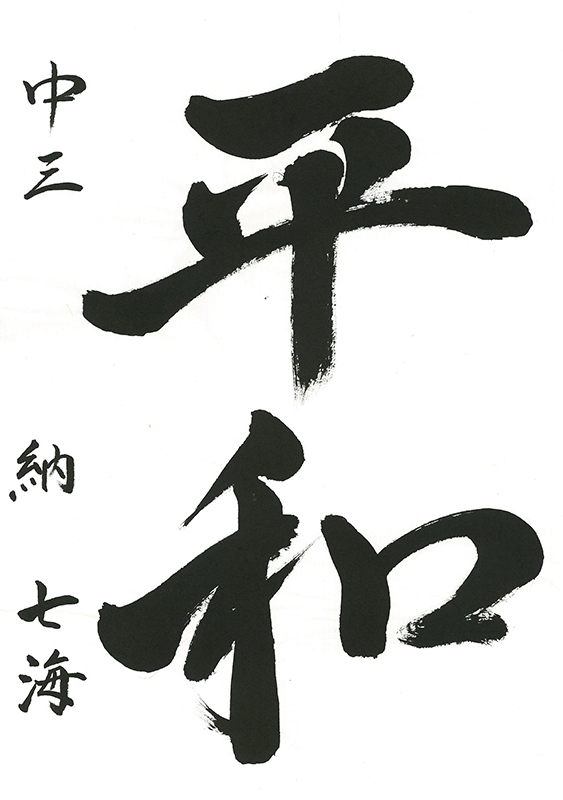 平和
中三 納 七海